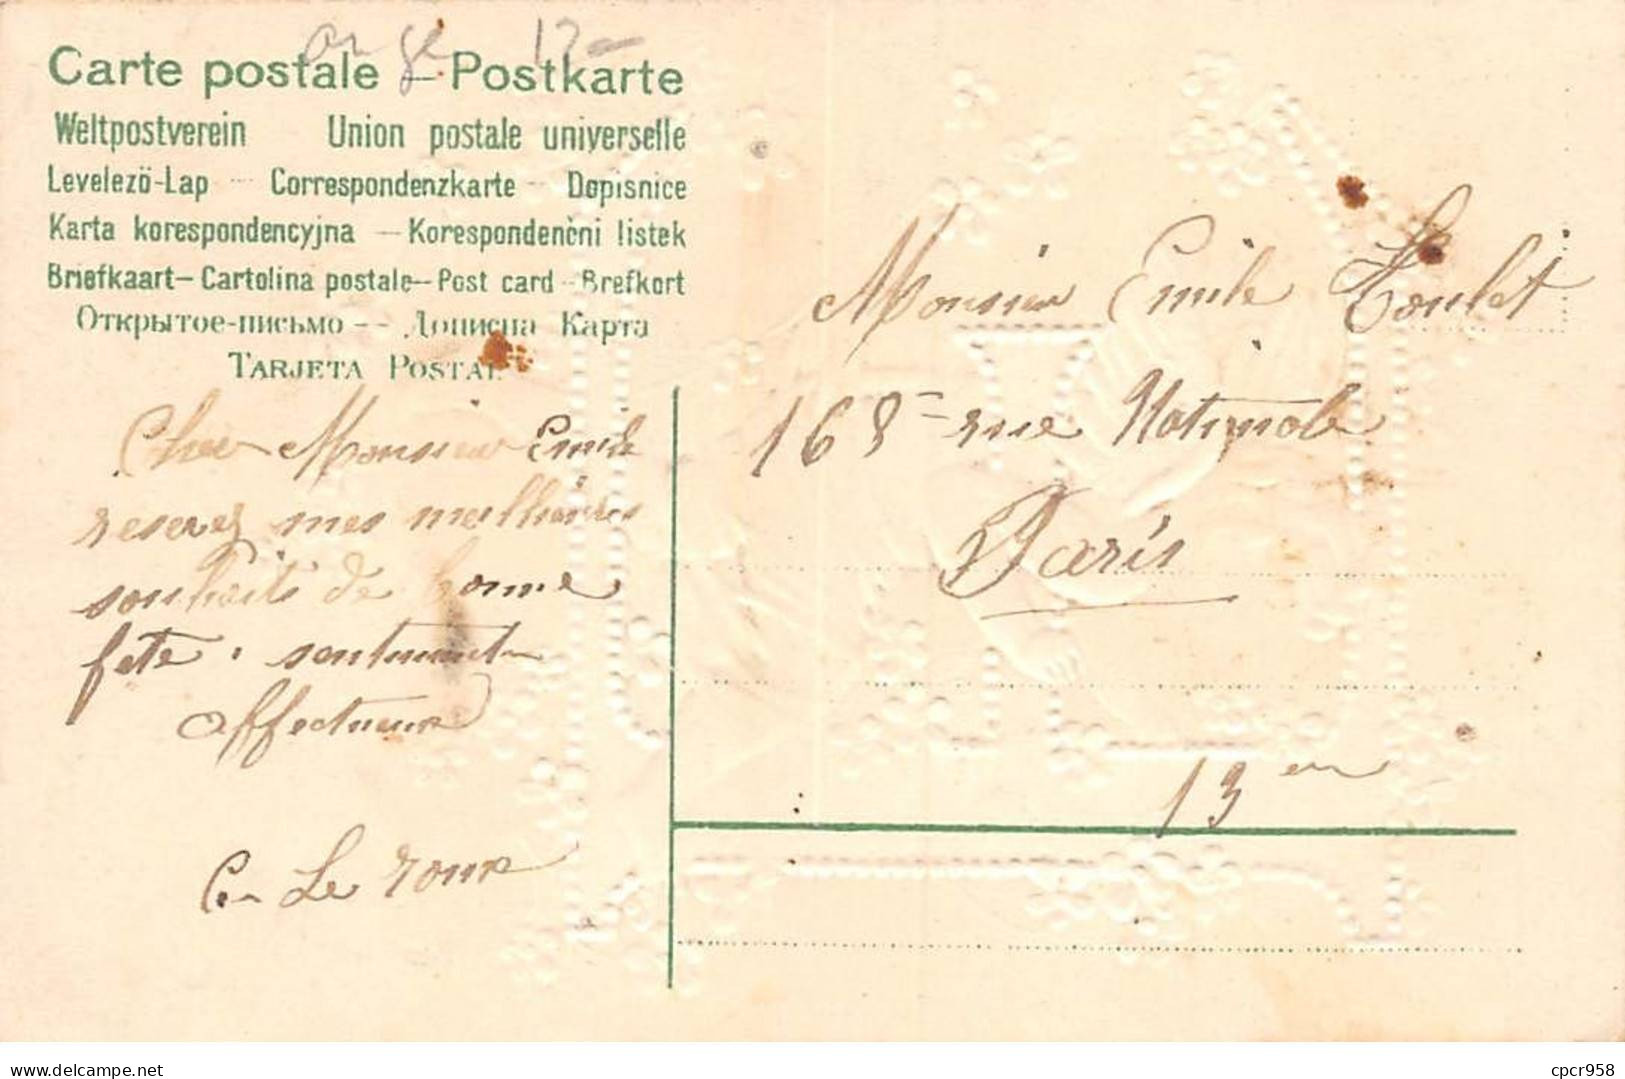 ange 12-
Carte postale – Postkarte
Weltpostverein Union postale universelle
Levelezö-Lap – Correspondenzkarte – Dopisnice
Karta korespondencyjna – Korespondenční listek
Briefkaart – Cartolina postale – Post card – Brefkort
Открытое-письмо -- Дописна Карта
TARJETA POSTAL
Cher Monsieur Emile
recevez mes meilleures
souhaits de bonne
fête. sentiments
affectueux
Le roux
Monsieur Emile Toulet
168 - rue Nationale
Paris
13 em
www.delcampe.net
cpcr958